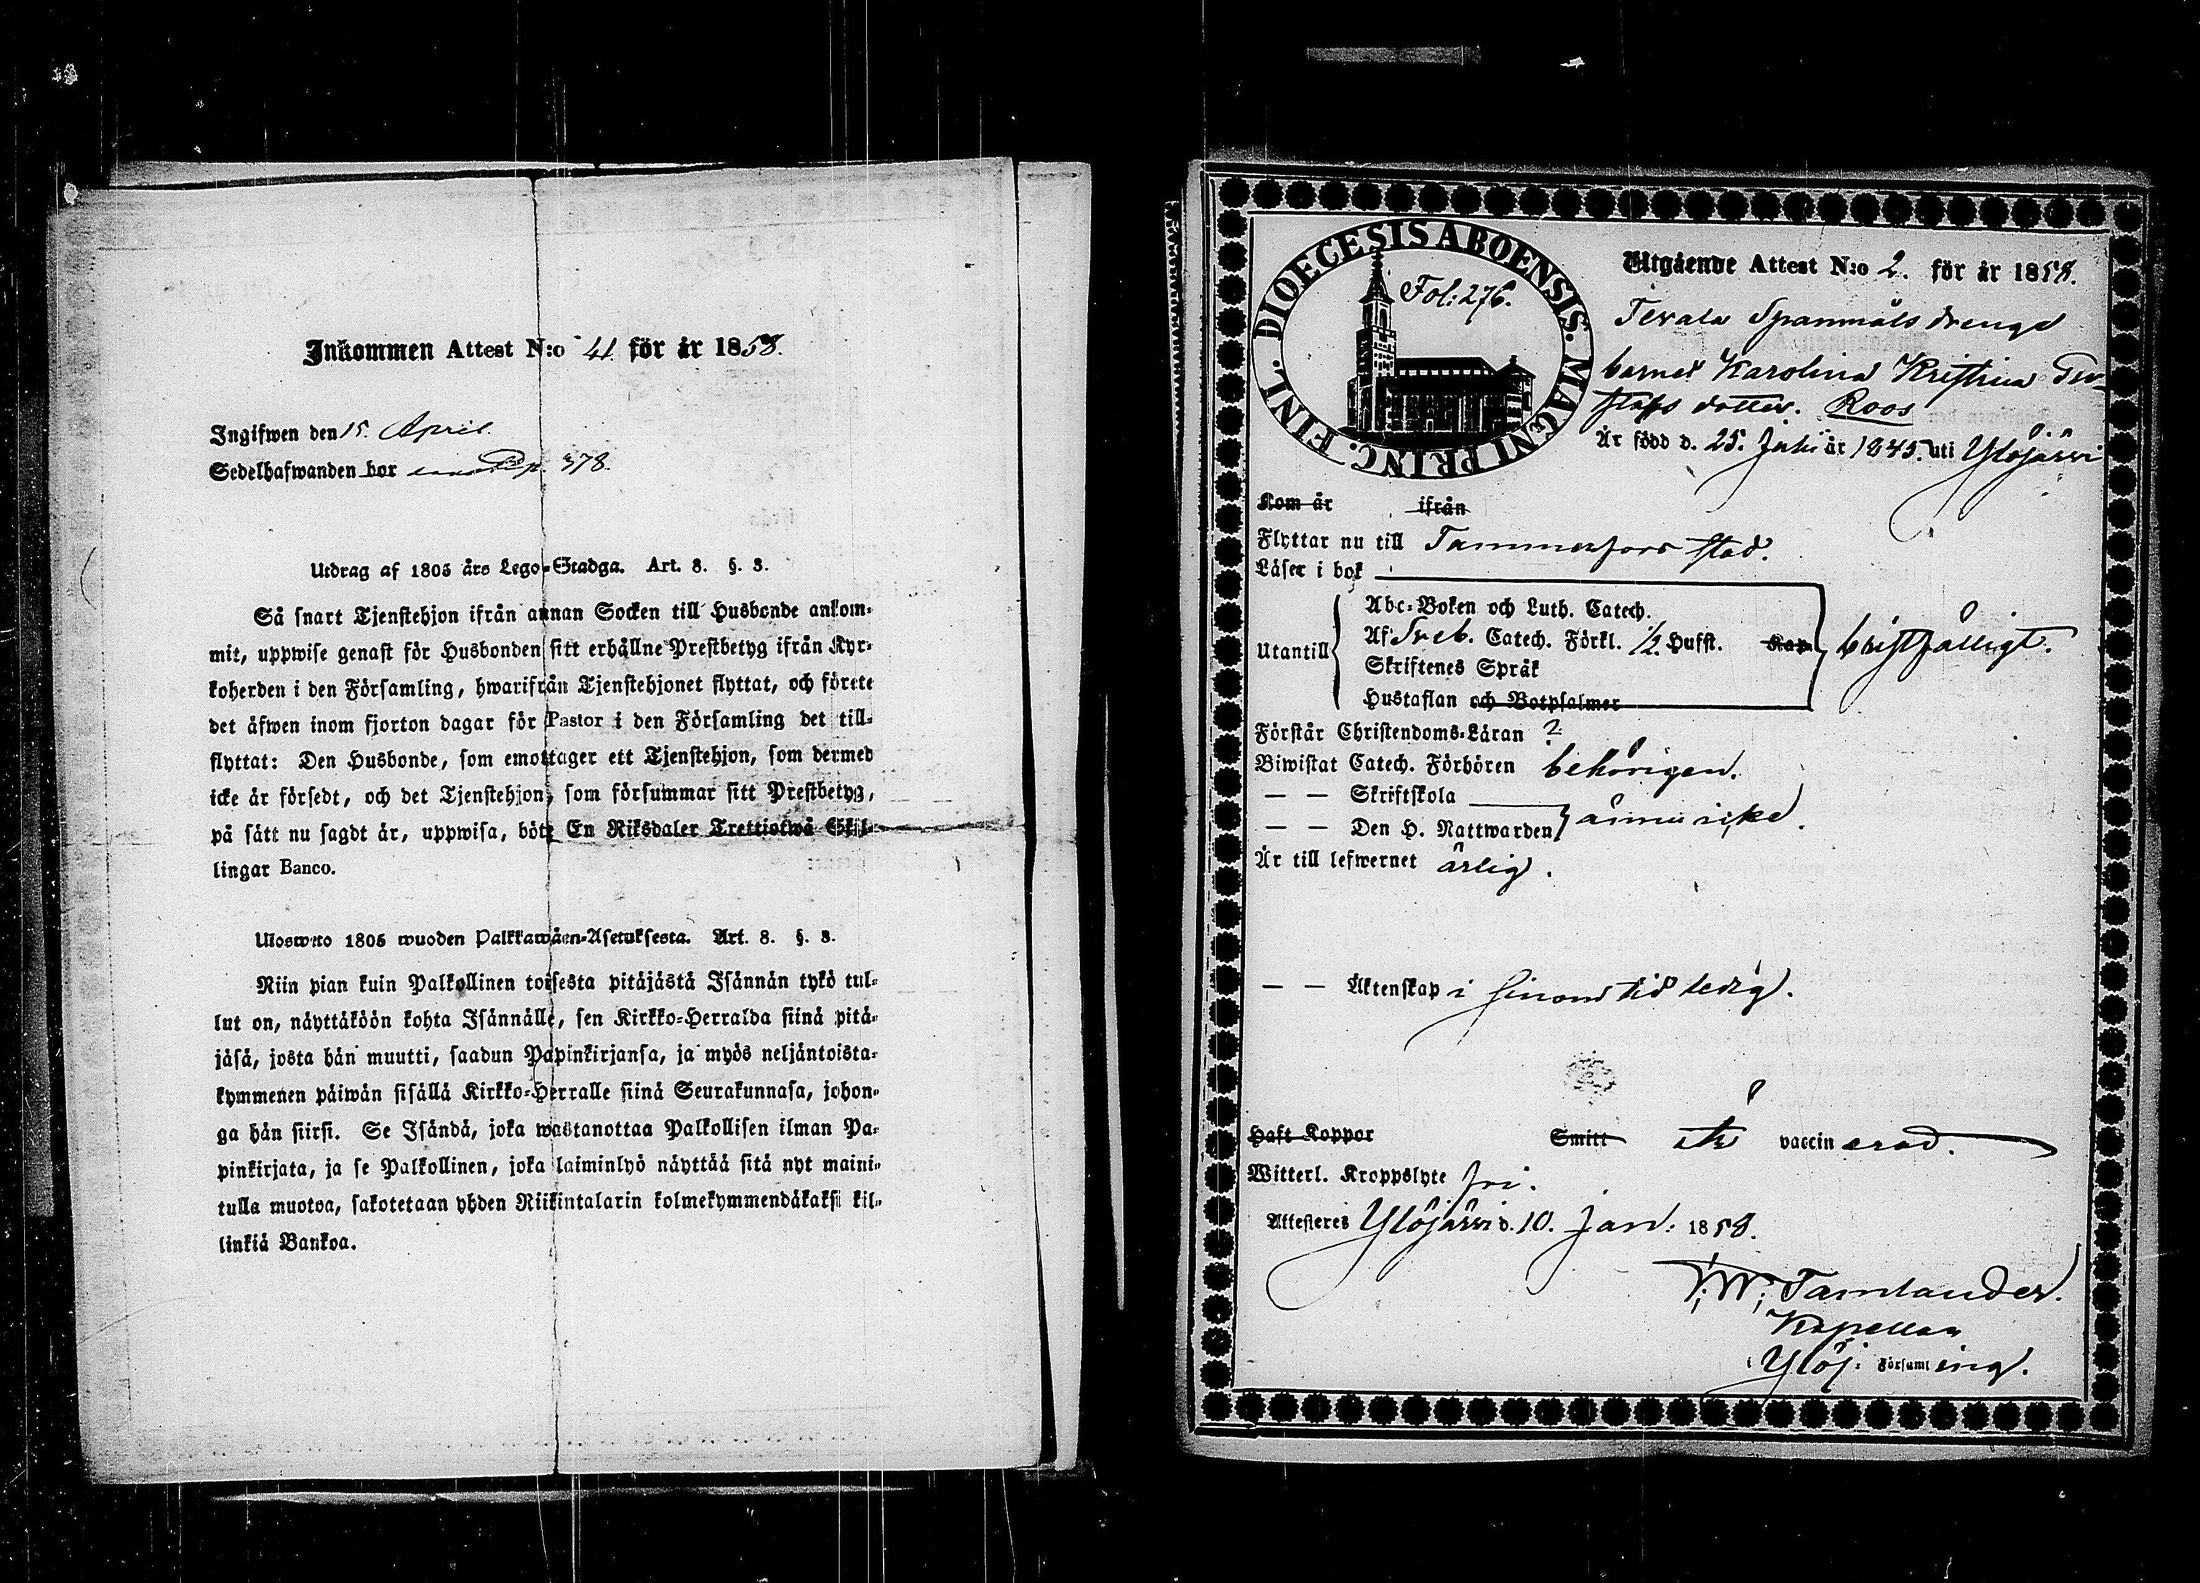 Inkommen Attest N:o 41 för år 1858.
Ingifwen den 15. April.
Sedelhafwanden bor p. 378.
Utdrag af 1805 års Lego-Stadga. Art. 8. §. 3.
Så snart Tjenstehjon ifrån annan Socken till Husbonde ankom-
mit, uppwise genast för Husbonden sitt erhållne Prestbetyg ifrån Kyr-
koherden i den Församling, hwarifrån Tjenstehjonet flyttat, och förete
det äfwen inom fjorton dagar för Pastor i den Församling det till-
flyttat: Den Husbonde, som emottager ett Tjenstehjon, som dermed
icke är försedt, och det Tjenstehjon, som försummar sitt Prestbetyg,
på sätt nu sagdt är, uppwisa, böte En Riksdaler Trettiotwå Skil-
lingar Banco.
Ulosweto 1805 wuoden Palkkawäen-Asetuksesta. Art. 8. §. 3.
Niin pian kuin Palkollinen toisesta pitäjästä Isännän tykö tul-
lut on, näyttäköön kohta Isännälle, sen Kirkko-Herralda siinä pitä-
jäsä, josta hän muutti, saadun Papinkirjansa, ja myös neljäntoista-
kymmenen päiwän sisällä Kirkko-Herralle siinä Seurakunnasa, johon-
ga hän siirsi. Se Isändä, joka wastanottaa Palkollisen ilman Pa-
pinkirjata, ja se Palkollinen, joka laiminlyö näyttää sitä nyt maini-
tulla muotoa, sakotetaan yhden Riikintalarin kolmekymmendäkaksi kil-
linkiä Bankoa.
DIOECESIS ABOENSIS. MAGNI PRINC. FINL.
Fol: 276.
Utgående Attest N:o 2. för år 1858.
Spanmåls drengs
barnet Karolina Kristina Gu-
stafs dotter. Roos
Är född d. 25. Juli år 1845. uti Ylöjärvi
Kom år ifrån
Flyttar nu till Tammerfors stad.
Läser i bok
Abc-Boken och Luth. Catech.
Utantill Af Sveb. Catech. Förkl. 1/2. Hufst. Kap. bristfälligt.
Skriftenes Språk
Hustaflan och Botpsalmer
Förstår Christendoms-Läran ?
Biwistat Catech. Förhören behörigen.
— — Skriftskola
— — Den H. Nattwarden ännu icke.
Är till lefwernet ärlig.
— — Äktenskap i sinom tid ledig.
Haft Koppor Smitt vaccinerad.
Witterl. Kroppslyte fri.
Attesteras Ylöjärvi d. 10. Jan: 1858.
Tamlander.
Kapellan
i Ylöj: Församling.